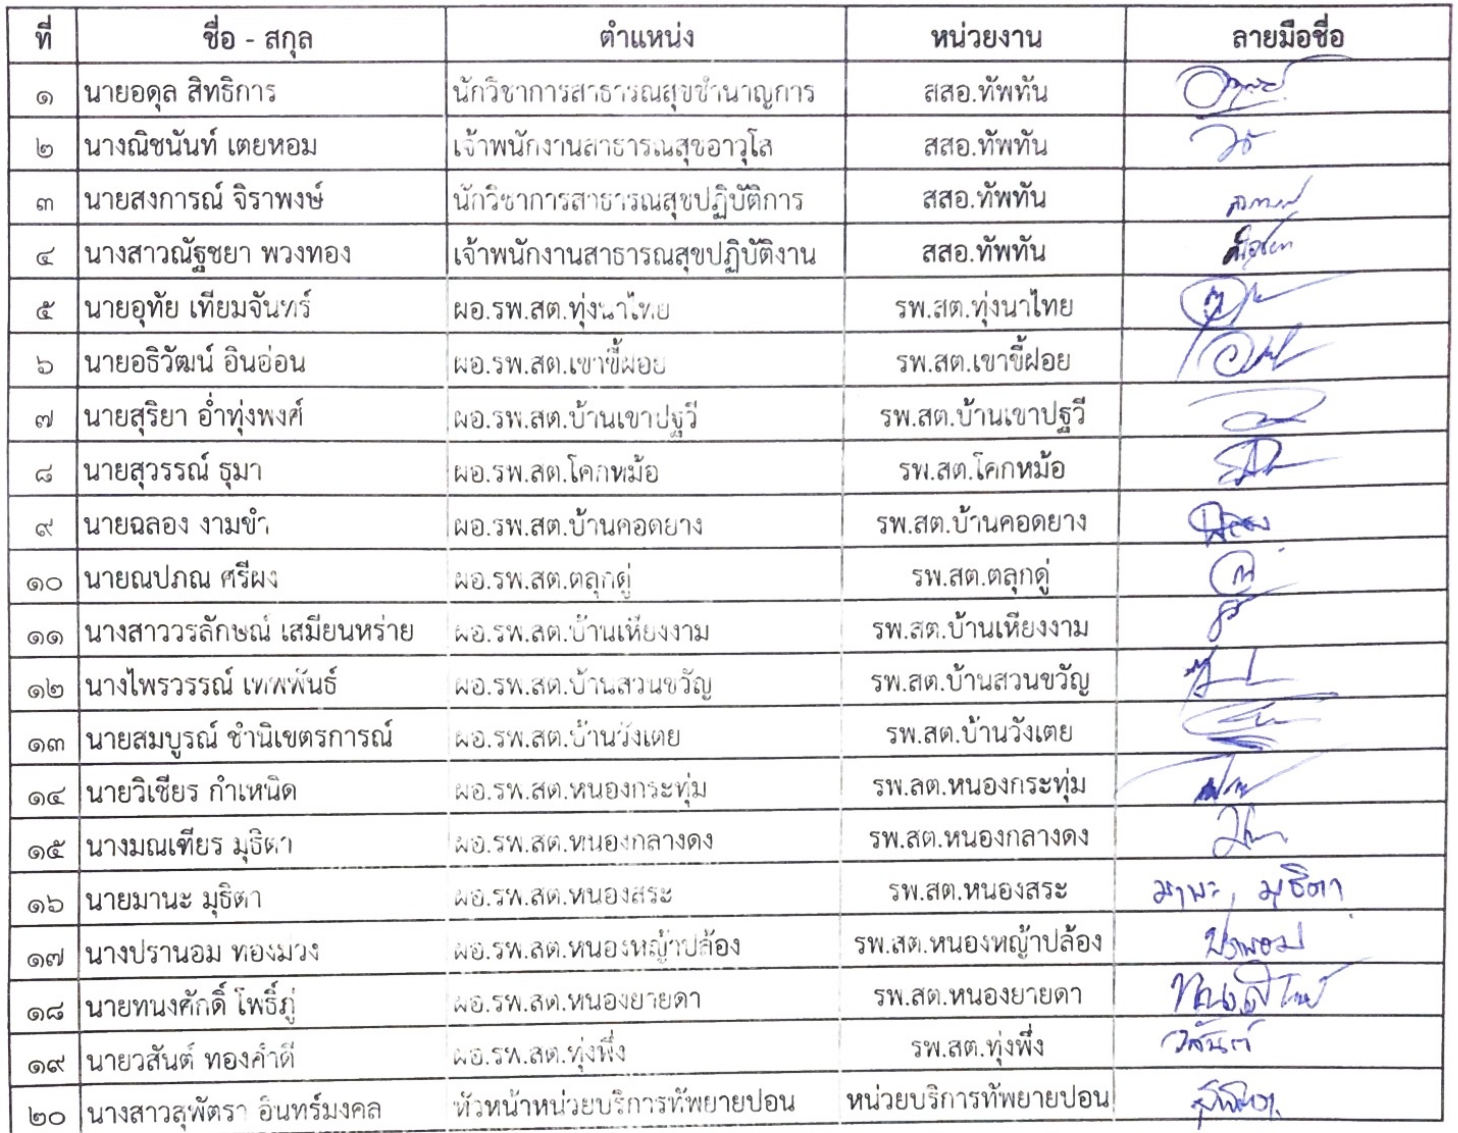 ที่ ชื่อ - สกุล ตำแหน่ง หน่วยงาน ลายมือชื่อ
๑ นายอดุล สิทธิการ นักวิชาการสาธารณสุขชำนาญการ สสอ.ทัพทัน
๒ นางณิชนันท์ เตยหอม เจ้าพนักงานสาธารณสุขอาวุโส สสอ.ทัพทัน
๓ นายสงการณ์ จิราพงษ์ นักวิชาการสาธารณสุขปฏิบัติการ สสอ.ทัพทัน
๔ นางสาวณัฐชยา พวงทอง เจ้าพนักงานสาธารณสุขปฏิบัติงาน สสอ.ทัพทัน
๕ นายอุทัย เทียมจันทร์ ผอ.รพ.สต.ทุ่งนาไทย รพ.สต.ทุ่งนาไทย
๖ นายอธิวัฒน์ อินอ่อน ผอ.รพ.สต.เขาขี้ฝอย รพ.สต.เขาขี้ฝอย
๗ นายสุริยา อ่ำทุ่งพงศ์ ผอ.รพ.สต.บ้านเขาปฐวี รพ.สต.บ้านเขาปฐวี
๘ นายสุวรรณ์ ธุมา ผอ.รพ.สต.โคกหม้อ รพ.สต.โคกหม้อ
๙ นายฉลอง งามขำ ผอ.รพ.สต.บ้านคอดยาง รพ.สต.บ้านคอดยาง
๑๐ นายณปภณ ศรีผง ผอ.รพ.สต.ตลุกดู่ รพ.สต.ตลุกดู่
๑๑ นางสาววรลักษณ์ เสมียนหร่าย ผอ.รพ.สต.บ้านเหียงงาม รพ.สต.บ้านเหียงงาม
๑๒ นางไพรวรรณ์ เทพพันธ์ ผอ.รพ.สต.บ้านสวนขวัญ รพ.สต.บ้านสวนขวัญ
๑๓ นายสมบูรณ์ ชำนิเขตรการณ์ ผอ.รพ.สต.บ้านวังเตย รพ.สต.บ้านวังเตย
๑๔ นายวิเชียร กำเหนิด ผอ.รพ.สต.หนองกระทุ่ม รพ.สต.หนองกระทุ่ม
๑๕ นางมณเทียร มุธิตา ผอ.รพ.สต.หนองกลางดง รพ.สต.หนองกลางดง
๑๖ นายมานะ มุธิตา ผอ.รพ.สต.หนองสระ รพ.สต.หนองสระ มานะ มุธิตา
๑๗ นางปรานอม ทองม่วง ผอ.รพ.สต.หนองหญ้าปล้อง รพ.สต.หนองหญ้าปล้อง ปรานอม
๑๘ นายทนงศักดิ์ โพธิ์ภู่ ผอ.รพ.สต.หนองยายดา รพ.สต.หนองยายดา
๑๙ นายวสันต์ ทองคำดี ผอ.รพ.สต.ทุ่งพึ่ง รพ.สต.ทุ่งพึ่ง วสันต์
๒๐ นางสาวสุพัตรา อินทร์มงคล หัวหน้าหน่วยบริการทัพยายปอน หน่วยบริการทัพยายปอน